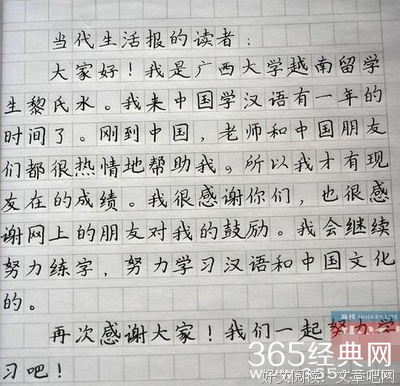 当代生活报的读者：
大家好！我是广西大学越南留学
生黎氏水。我来中国学汉语有一年的
时间了。刚到中国，老师和中国朋友
们都很热情地帮助我。所以我才有现
在的成绩。我很感谢你们，也很感
谢网上的朋友对我的鼓励。我会继续
努力练字，努力学习汉语和中国文化
的。
再次感谢大家！我们一起努力学
习吧！
MODERN LIFE
365经典网
好文阅读：文章吧网